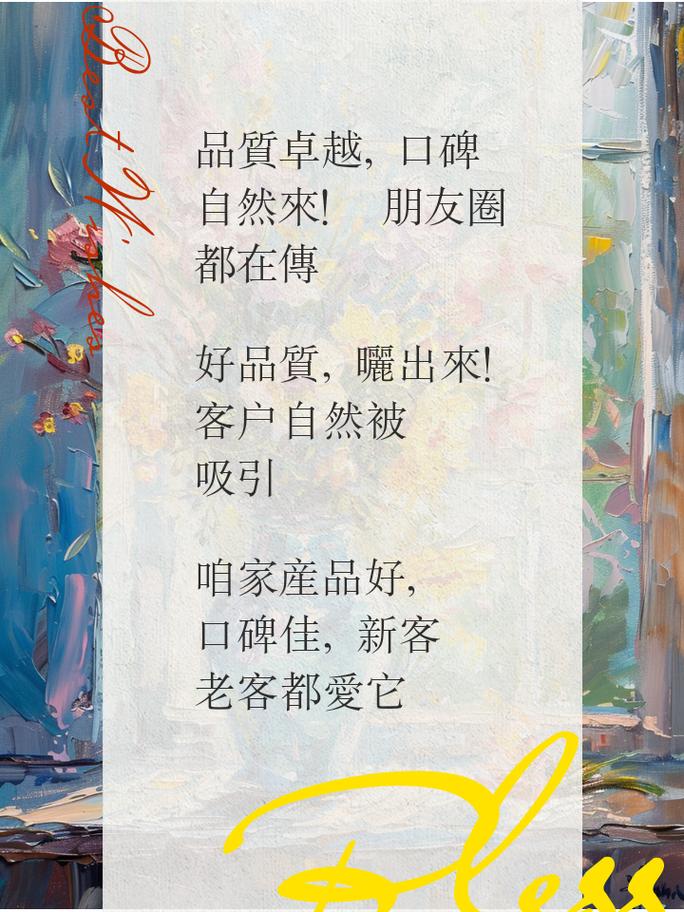 Best Wishes
品質卓越，口碑
自然來！ 朋友圈
都在傳
好品質，曬出來！
客户自然被
吸引
咱家産品好，
口碑佳，新客
老客都愛它
Bless